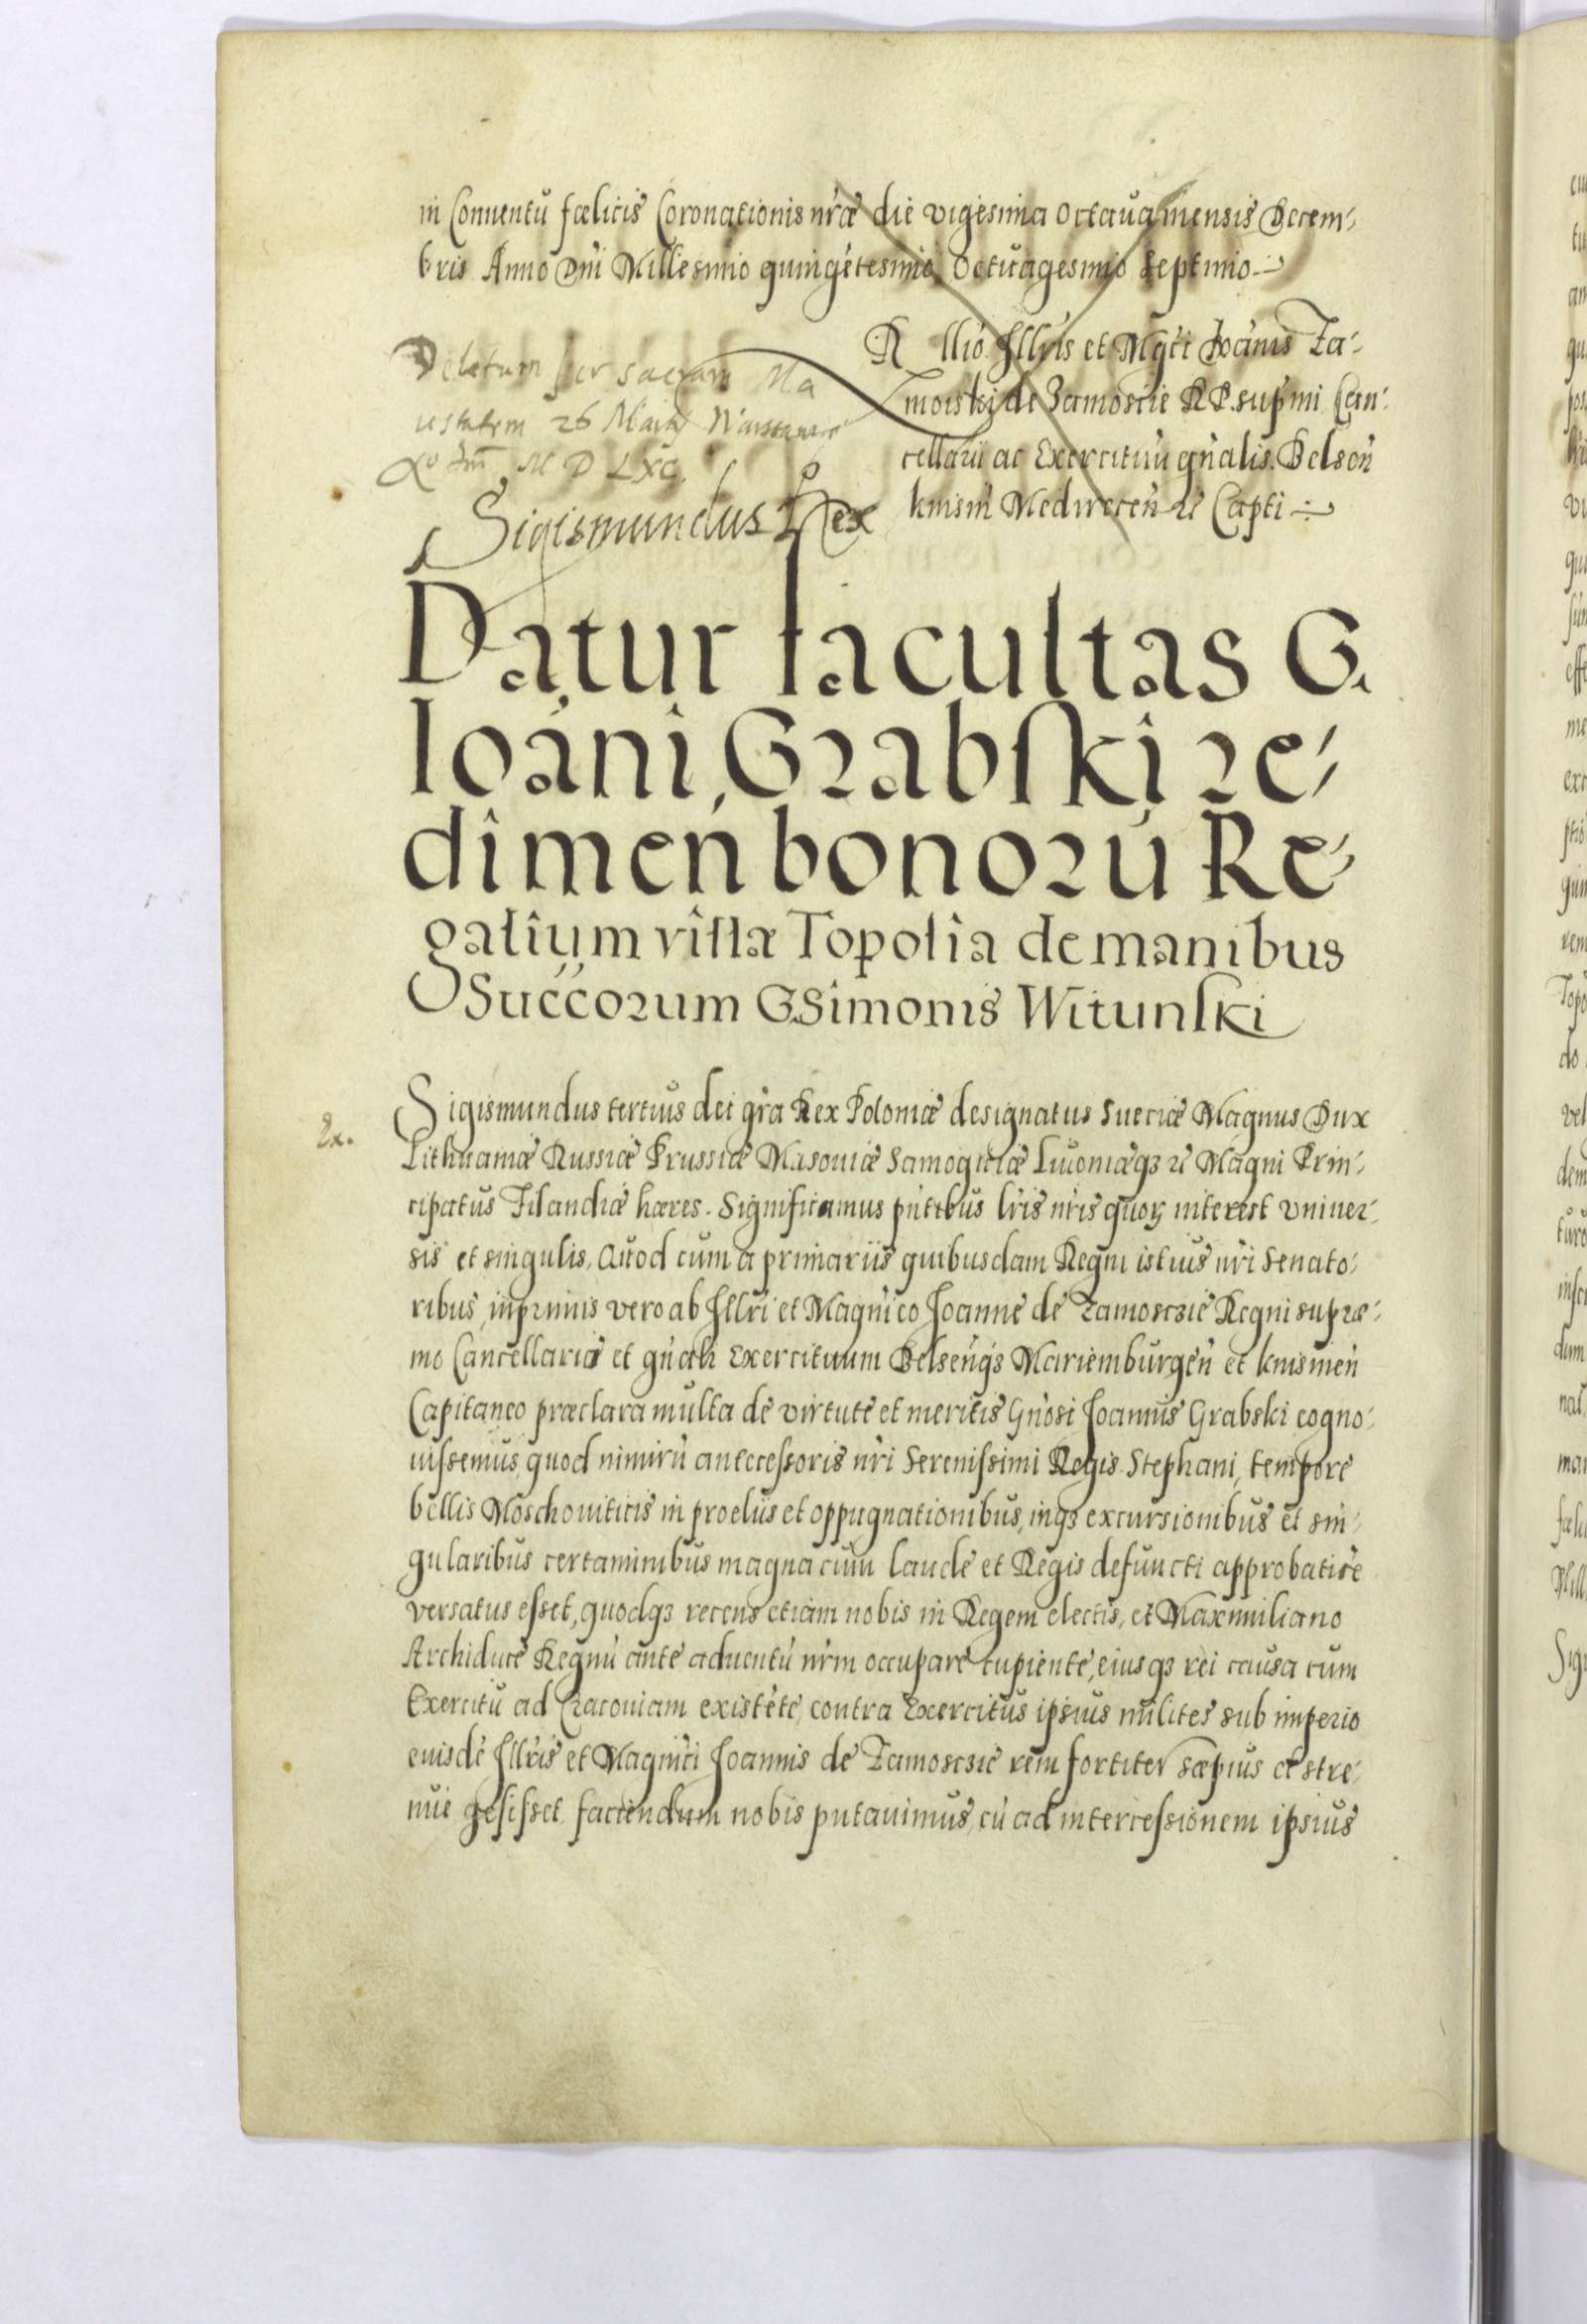 in Conuentú fœlicis Coronationis nr̃æ die vigesima Octaua mensis Decem-
bris Anno Dni Millesimo quingétesimo Octuagesimo septimo
R llio Illris et Mgci Ioánis Za-
moiski de Zamoscie R P. supmi Can-
cellarii ac Exercituú gnalis. Belsen
knisin Medirecen zc Capti
Deletum per sacram Ma
iestatem 26 Maii Warssauiæ
Aº Dni M D LXC.
Sigismundus Rex
Datur facultas G.
Ioáni Grabski re-
dimeń bonorú Re-
galium villæ Topolia de manibus
Succorum G. Simonis Witunski
Ex.
Sigismundus tertius dei gr̃a Rex Poloniæ designatus Sueciæ Magnus Dux
Lithuaniæ Russiæ Prussiæ Masouiæ Samogitiæ Liuoniæqȝ zc Magni Prin-
cipatus Filandiæ hæres. Significamus pńtibus lr̃is nr̃is quoꝝ interest vniuer-
sis et singulis, Quod cum a primariis quibusdam Regni istius nr̃i Senato-
ribus, inprimis vero ab Illri et Magnico Joanne de Zamoscsie Regni supræ-
mo Cancellario et gńali Exercituum Belsenqȝ Mariemburgeń et knisineń
Capitaneo præclara multa de virtute et meritis Gńosi Joannis Grabski cogno-
uissemus, quod nimirú antecessoris nr̃i Serenissimi Regis Stephani, tempore
bellis Moschouiticis in proeliis et oppugnationibus, inqȝ excursionibus et sin-
gularibus certaminibus magna cum laude et Regis defuncti approbatióe
versatus esset, quodqȝ recens etiam nobis in Regem electis, et Maximiliano
Archiduce Regnú ante aduentú nr̃m occupare cupiente, eiusqȝ rei causa cum
Exercitu ad Cracouiam existéte, contra Exercitus ipsius milites sub imperio
eiusdé Illris et Magnici Joannis de Zamoscsie rem fortiter sæpius et stre-
nue gesisset, faciendum nobis putauimus, cú ad intercessionem ipsius